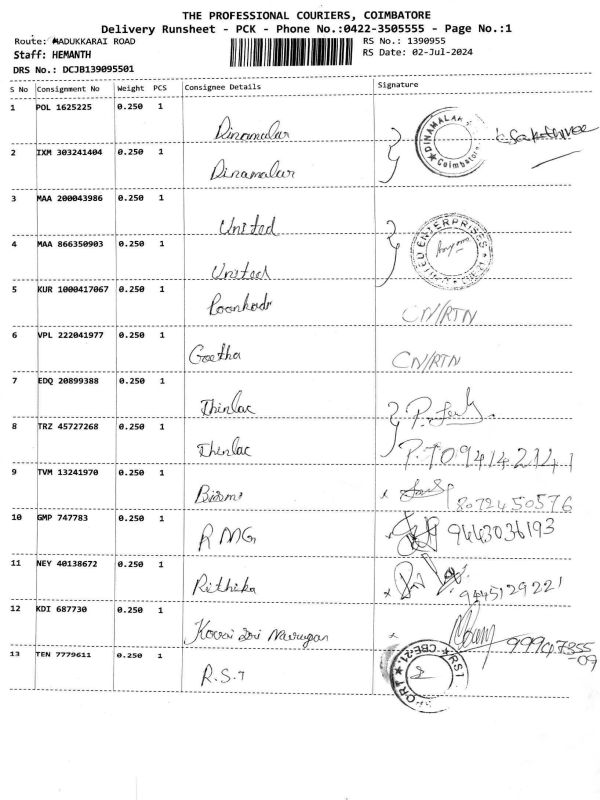 THE PROFESSIONAL COURIERS, COIMBATORE
Delivery Runsheet - PCK - Phone No.:0422-3505555 - Page No.:1
Route: MADUKKARAI ROAD
RS No.: 1390955
Staff: HEMANTH
RS Date: 02-Jul-2024
DRS No.: DCJB139095501
S No Consignment No Weight PCS Consignee Details Signature
1 POL 1625225 0.250 1 Dinamalar DINAMALAR Coimbatore
2 IXM 303241404 0.250 1 Dinamalar
3 MAA 200043986 0.250 1 United ENTERPRISES
4 MAA 866350903 0.250 1 United
5 KUR 1000417067 0.250 1 Poonkodi CN/RTN
6 VPL 222041977 0.250 1 Geetha CN/RTN
7 EDQ 20899388 0.250 1 Thinlac
8 TRZ 45727268 0.250 1 Thinlac
9 TVM 13241970 0.250 1 8072450576
10 GMP 747783 0.250 1 RMG 9443036193
11 NEY 40138672 0.250 1 Rithika 9445129221
12 KDI 687730 0.250 1 Kovai Sri Murugan 99947355-09
13 TEN 7779611 0.250 1 R.S.T CBE-21